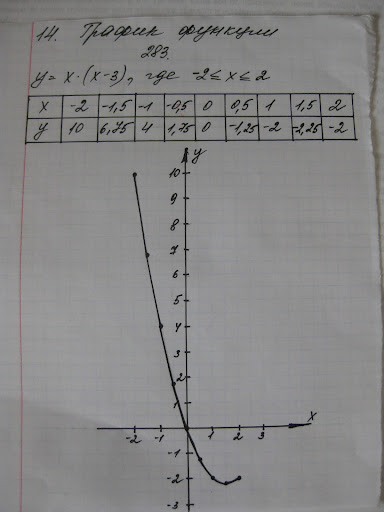 14. График функции
283.
y = x·(x-3), где -2≤x≤2
x -2 -1,5 -1 -0,5 0 0,5 1 1,5 2
y 10 6,75 4 1,75 0 -1,25 -2 -2,25 -2
y
10
9
8
7
6
5
4
3
2
1
x
-2 -1 1 2 3
-1
-2
-3